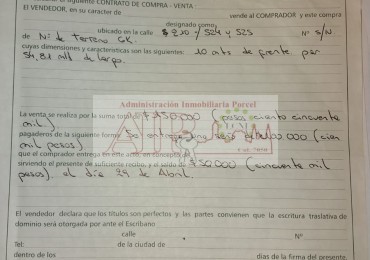 siguiente CONTRATO DE COMPRA - VENTA :
El VENDEDOR, en su caracter de vende al COMPRADOR y este compra
designado como
ubicado en la calle 520 / 524 y 525 N° S/N
de N° de Terreno
cuyas dimensiones y características son las siguientes: 10 mts de frente por
54,81 de largo.
Administración Inmobiliaria Porcel
La venta se realiza por la suma total de $ 150.000 (pesos ciento cincuenta
mil)
pagaderos de la siguiente forma: Se entrega una 100.000 (cien
mil pesos)
que el comprador entrega en este acto, en concepto de
sirviendo el presente de suficiente recibo; y el saldo de $ 50.000 (cincuenta mil
pesos). el día 29 de Abril.
El vendedor declara que los títulos son perfectos y las partes convienen que la escritura traslativa de
dominio será otorgada por ante el Escribano
calle N°
Tel: de la ciudad de
dentro de los días de la firma del presente.